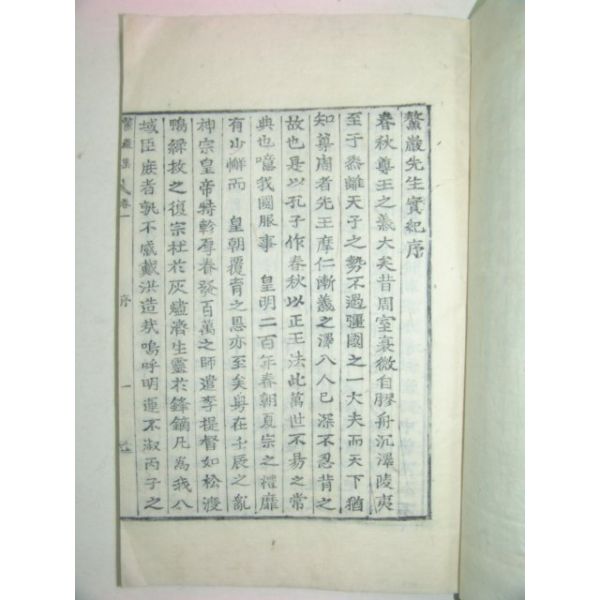 鰲巖先生實紀序
春秋尊王之義大矣昔周室衰微自膠舟沉澤陵夷
至于黍離天子之勢不過彊國之一大夫而天下猶
知尊周者先王摩仁漸義之澤入人已深不忍背之
故也是以孔子作春秋以正王法此萬世不易之常
典也噫我國服事 皇明二百年春朝夏宗之禮靡
有少懈而 皇朝覆育之恩亦至矣粤在壬辰之亂
神宗皇帝特軫厚眷發百萬之師遣李提督如松渡
鴨綠救之復宗社於灰燼濟生靈於鋒鏑凡為我八
域臣庶者孰不感戴洪造哉嗚呼明運不淑丙子之
卷一
序
一